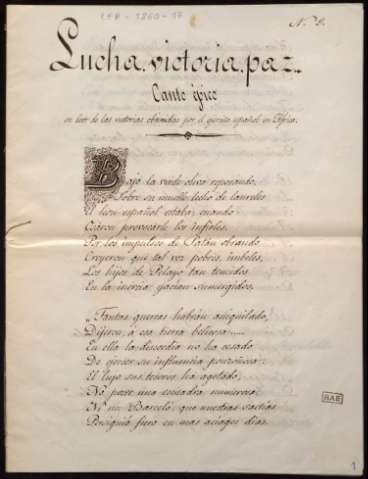 LEB-1860-17
N.º 9.
Lucha, victoria, paz.
Canto épico
en loor de las victorias obtenidas por el ejército español en África.
Bajo la verde oliva reposando,
Sobre su muelle lecho de laureles
El león español estaba, cuando
Osáron provocarle los infieles.
Por los impulsos de Satán obrando
Creyeron que tal vez pobres, imbeles,
Los hijos de Pelayo tan temidos
En la inercia yacían sumergidos.
"Tantas guerras habrán aniquilado,
Dijeron, á esa tierra belicosa.....
En ella la discordia no ha cesado
De ejercer su influencia ponzoñosa:
El lujo sus tesoros ha agotado;
No posee una escuadra numerosa;
Ni un Barceló, que nuestras naves
Persiguió fiero en mas aciagos dias.
RAE
1